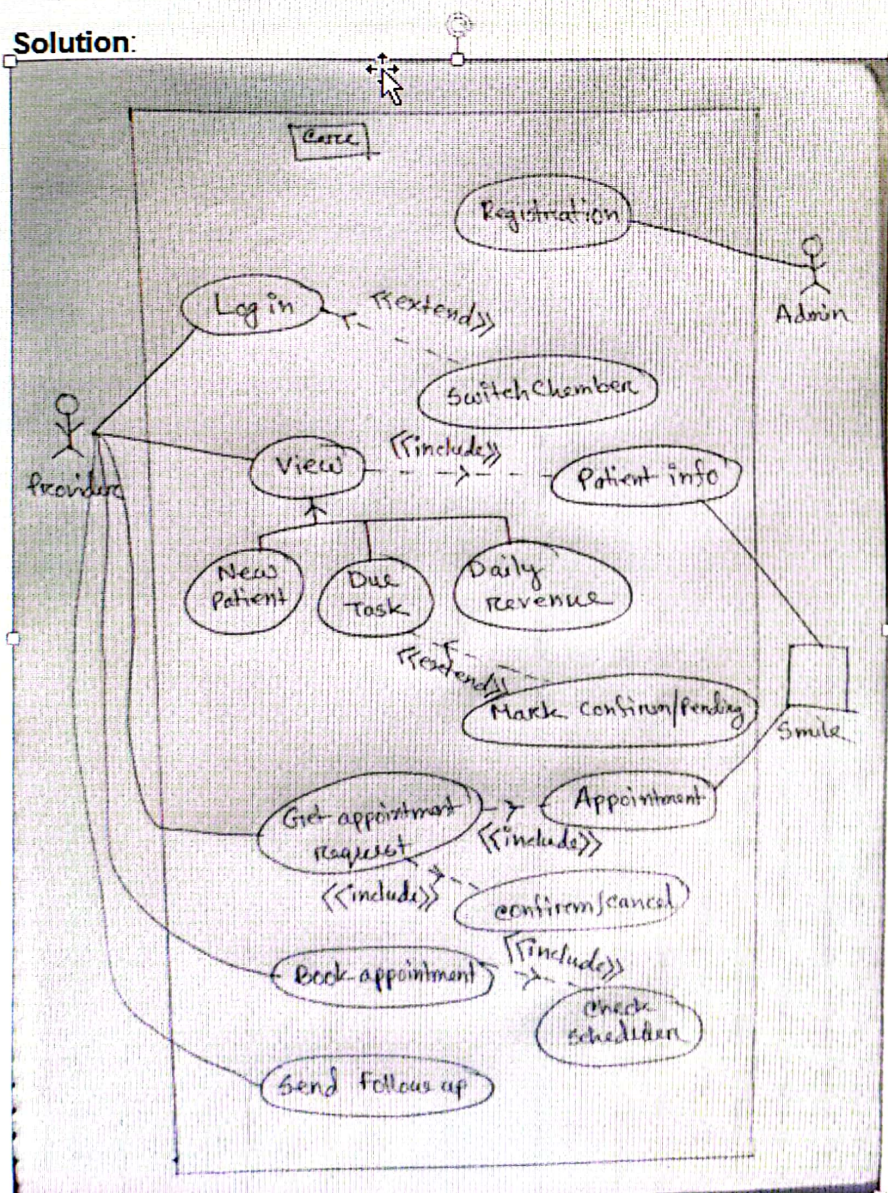 Solution:
Care
Registration
Admin
Log in
<<extend>>
Switch Chember
Provider
View
<<include>>
Patient info
New
Patient
Due
Task
Daily
revenue
<<extend>>
Mark Confirm/Pending
Smile
Get appointment
request
Appointment
<<include>>
<<include>>
confirm/cancel
Book appointment
<<include>>
check
Send Follow up